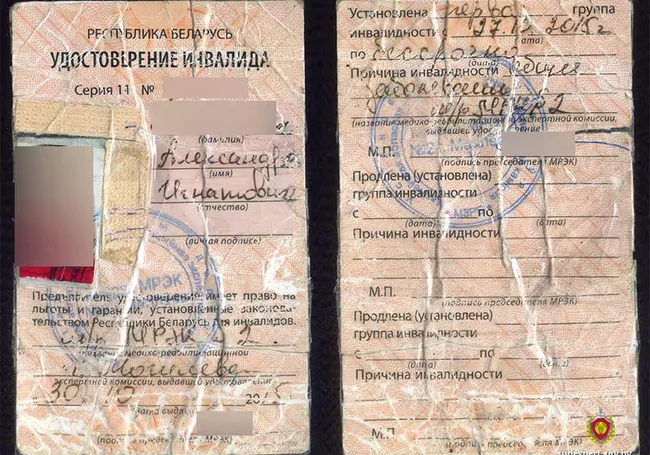 РЕСПУБЛИКА БЕЛАРУСЬ
УДОСТОВЕРЕНИЕ ИНВАЛИДА
Серия 11 №
(фамилия)
Александр
(имя)
Игнатович
(отчество)
(личная подпись)
МРЭК
Предъявитель удостоверения имеет право на
льготы и гарантии, установленные законода-
тельством Республики Беларусь для инвалидов.
наименование медико-реабилитационной
г. Могилева
экспертной комиссии, выдавшей удостоверение
"30" 10 2015
(дата выдачи)
(подпись председателя МРЭК)
Установлена перва группа
инвалидности с 27. 2015г
(дата)
по бессрочно
(дата)
Причина инвалидности общее
заболевание
МРЭК 2
(название медико-реабилитационной экспертной комиссии,
выдавшей удостоверение)
М.П.
(подпись председателя МРЭК)
Продлена (установлена)
группа инвалидности
с по
(дата) (дата)
Причина инвалидности
М.П.
(подпись председателя МРЭК)
Продлена (установлена)
группа инвалидности
с по
(дата) (дата)
Причина инвалидности
М.П.
(подпись председателя МРЭК)